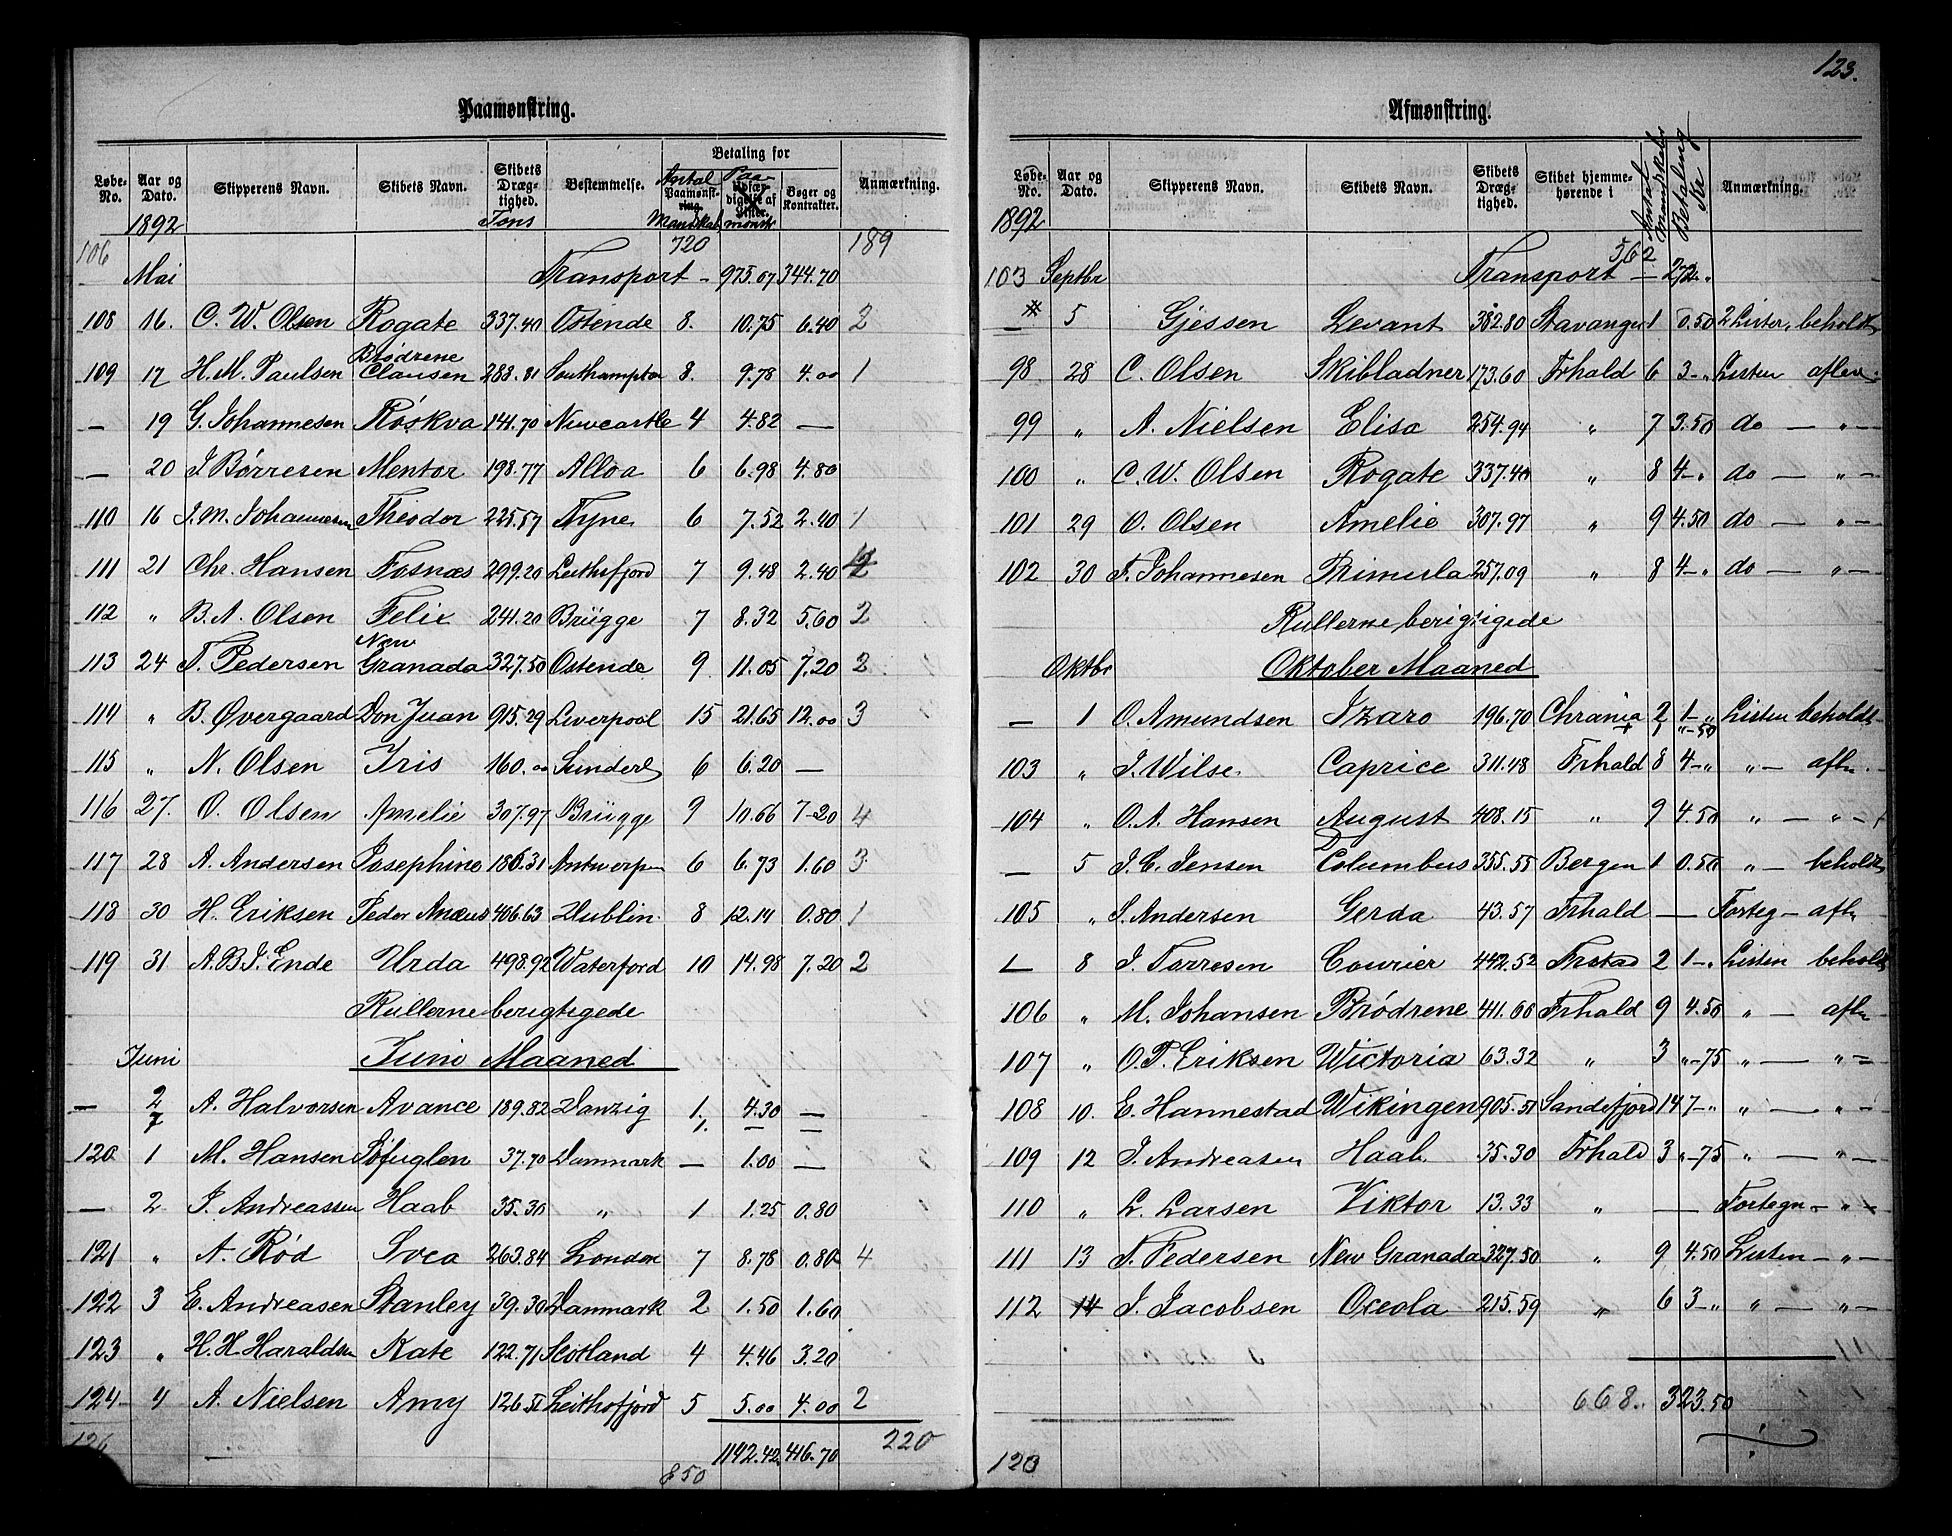 123.
Paamønstring.
Løbe-No. Aar og Dato. Skipperens Navn. Skibets Navn. Skibets Dræg-tighed. Bestemmelse. Betaling for Antal Paamønst-ring. Mandskab Bøger og Kontrakter. Anmærkning.
1892 Tons
106 720 189
Mai Transport - 975.07 344.70
108 16. C. W. Olsen Rogate 337.40 Ostende 8. 10.75 6.40 2
109 17 H. M. Paulsen Brødrene Clausen 288.81 Southampton 8. 9.78 4.00 1
— 19 G. Johannesen Røskva 141.70 Newcastle 4 4.82 —
— 20 J Børresen Mentor 198.77 Alloa 6 6.98 4.80
110 16 J. M. Johannesen Theodor 225.57 Tyne 6 7.52 2.40 1
111 21 Chr. Hansen Fosnæs 299.20 Leithsfjord 7 9.48 2.40
112 " B. A. Olsen Felix 241.20 Brügge 7 8.32 5.60 2
113 24 T. Pedersen New Granada 327.50 Ostende 9 11.05 7.20 2
114 " B. Øvergaard Don Juan 915.29 Liverpool 15 21.65 12.00 3
115 " N. Olsen Iris 160.00 Sunderl 6 6.20 —
116 27. O. Olsen Amelie 307.97 Brügge 9 10.66 7-20 4
117 28 A. Andersen Josephine 186.31 Antwerpen 6 6.73 1.60 3
118 30 H. Eriksen Peder Anæus 406.63 Dublin 8 12.14 0.80 1
119 31 A. B. J. Ende Urda 498.92 Waterford 10 14.98 7.20 2
Rullerne berigtigede
Juni Juni Maaned
— 2/7 A. Halvorsen Avance 189.82 Danzig 1. 4.30 —
120 1 M. Hansen Søfuglen 37.70 Danmark — 1.00 —
— 2 J. Andreassen Haab 35.30 " 1 1.25 0.80
121 " A. Rød Svea 263.84 London 7 8.78 0.80 4
122 3 E. Andreasen Stanley 39.30 Danmark 2 1.50 1.60
123 " H. H. Haraldsen Kate 122.71 Skotland 4 4.46 3.20
124 4 A. Nielsen Amy 126.51 Leithsfjord 5 5.00 4.00 2
126 850 1142.42 416.70 220
Afmønstring.
Løbe-No. Aar og Dato. Skipperens Navn. Skibets Navn. Skibets Dræg-tighed. Skibet hjemme-hørende i Antal Mandskaber Betaling Kr Anmærkning.
1892
103 Septbr Transport 562 — 272 "
— 5 Gjessen Levant 382.80 Stavanger 1 0.50 2 Lister beholdt
98 28 C. Olsen Skibladner 173.60 Frhald 6 3-" Listen aflev.
99 " A. Nielsen Elisa 254.94 " 7 3.50 do — " —
100 " C. W. Olsen Rogate 337.40 " 8 4-" do — " —
101 29 O. Olsen Amelie 307.97 " 9 4.50 do — " —
102 30 F. Johannesen Primula 257.09 " 8 4-" do — " —
Rullerne berigtigede
Oktbr Oktober Maaned
— 1 O. Amundsen Izaro 196.70 Chrania 2 1-" Listen beholdt
1 "-50
103 " J. Wilse Caprice 311.48 Frhald 8 4-" " — afl.
104 " O. A. Hansen August 408.15 " 9 4.50 " — " —
— 5 J. C. Jensen D Columbus 355.55 Bergen 1 0.50 " — beholdt
105 " S. Andersen Gerda 43.57 Frhald — Forteg — afl
— 8 J. Torresen Courier 442.52 Frstad 2 1-" Listen beholdt
106 " M. Johansen Brødrene 411.66 Frhald 9 4.50 " — afl
107 " O. T. Eriksen Wictoria 63.32 " 3 "-75 " — " —
108 10. E. Hannestad Wikingen 905.51 Sandefjord 14 7-" " — " —
109 12 J. Andreasen Haab 35.30 Frhald 3 "-75 " — " —
110 " L. Larsen Viktor 13.33 " — Fortegn — " —
111 13 T. Pedersen New Granada 327.50 " 9 4.50 Listen — " —
112 14 J. Jacobsen Oceola 215.59 " 6 3-" " — " —
668. 323.50
120